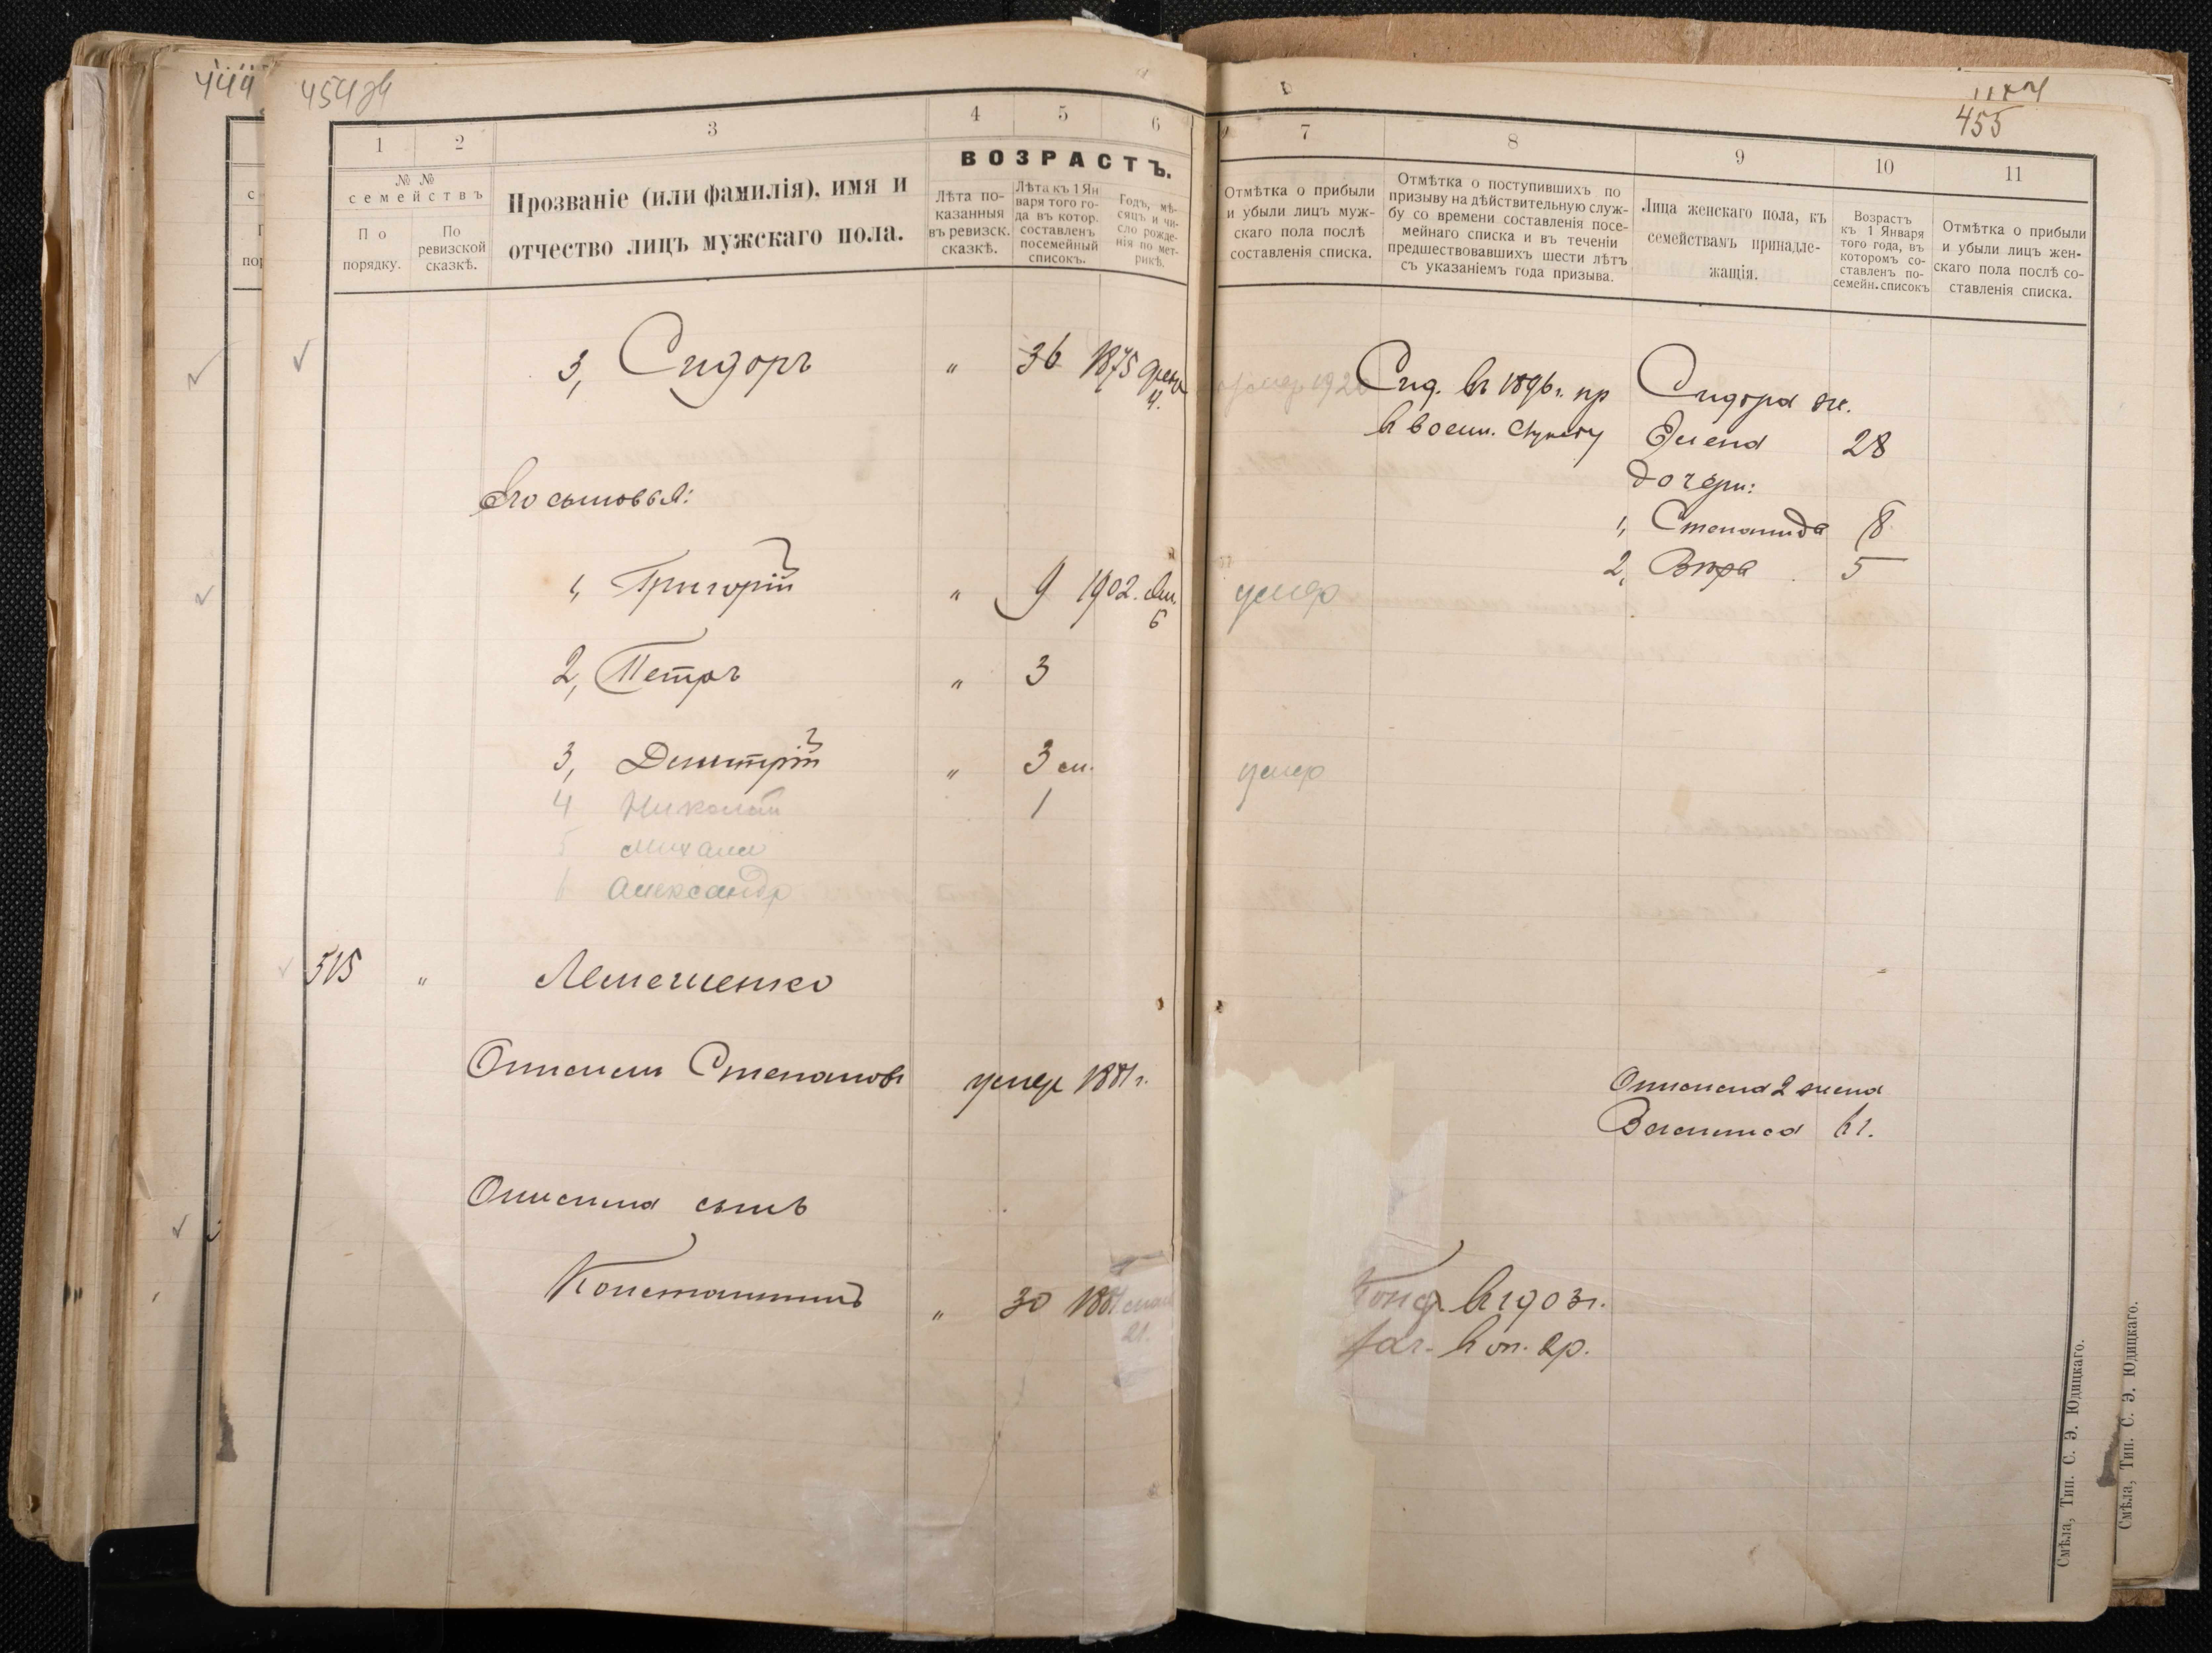 444
454зв
1
2
3
4
5
6
№ №
семействъ
По
порядку.
По
ревизской
сказкѣ.
Прозваніе (или фамилія), имя и
отчество лицъ мужскаго пола.
ВОЗРАСТЪ.
Лѣта по-
казанныя
въ ревизск.
сказкѣ.
Лѣта къ 1 Ян
варя того го-
да въ котор.
составленъ
посемейный
списокъ.
Годъ, мѣ-
сяцъ и чи-
сло рожде-
нія по мет-
рикѣ.
3, Сидоръ " 36 1875 февр
4.
Его сыновья:
1, Григорій " 9 1902. Ян.
6
2, Петръ " 3
3, Дмитрій " 3 м.
4 Николай 1
5 Михаил
6 Александр
515 " Лемешенко
Степановъ умер 1881 г.
сынъ
Константинъ " 30 1881
21.
455
7
8
9
10
11
Отмѣтка о прибыли
и убыли лицъ муж-
скаго пола послѣ
составленія списка.
Отмѣтка о поступившихъ по
призыву на дѣйствительную служ-
бу со времени составленія посе-
мейнаго списка и въ теченіи
предшествовавшихъ шести лѣтъ
съ указаніемъ года призыва.
Лица женскаго пола, къ
семействамъ принадле-
жащія.
Возрастъ
къ 1 Января
того года, въ
которомъ со-
ставленъ по-
семейн. списокъ
Отмѣтка о прибыли
и убыли лицъ жен-
скаго пола послѣ со-
ставленія списка.
умер 192
Сид. въ 1896 г. пр
в воен. службу
Сидора ж.
Елена 28
дочери:
1, Степанида 8
2, Вѣра 5
умер
умер
2 жена
Василиса 61.
Конс. въ 1903 г.
зач. в оп. вр.
Смѣла, Тип. С. Э. Юдицкаго.
Смѣла, Тип. С. Э. Юдицкаго.